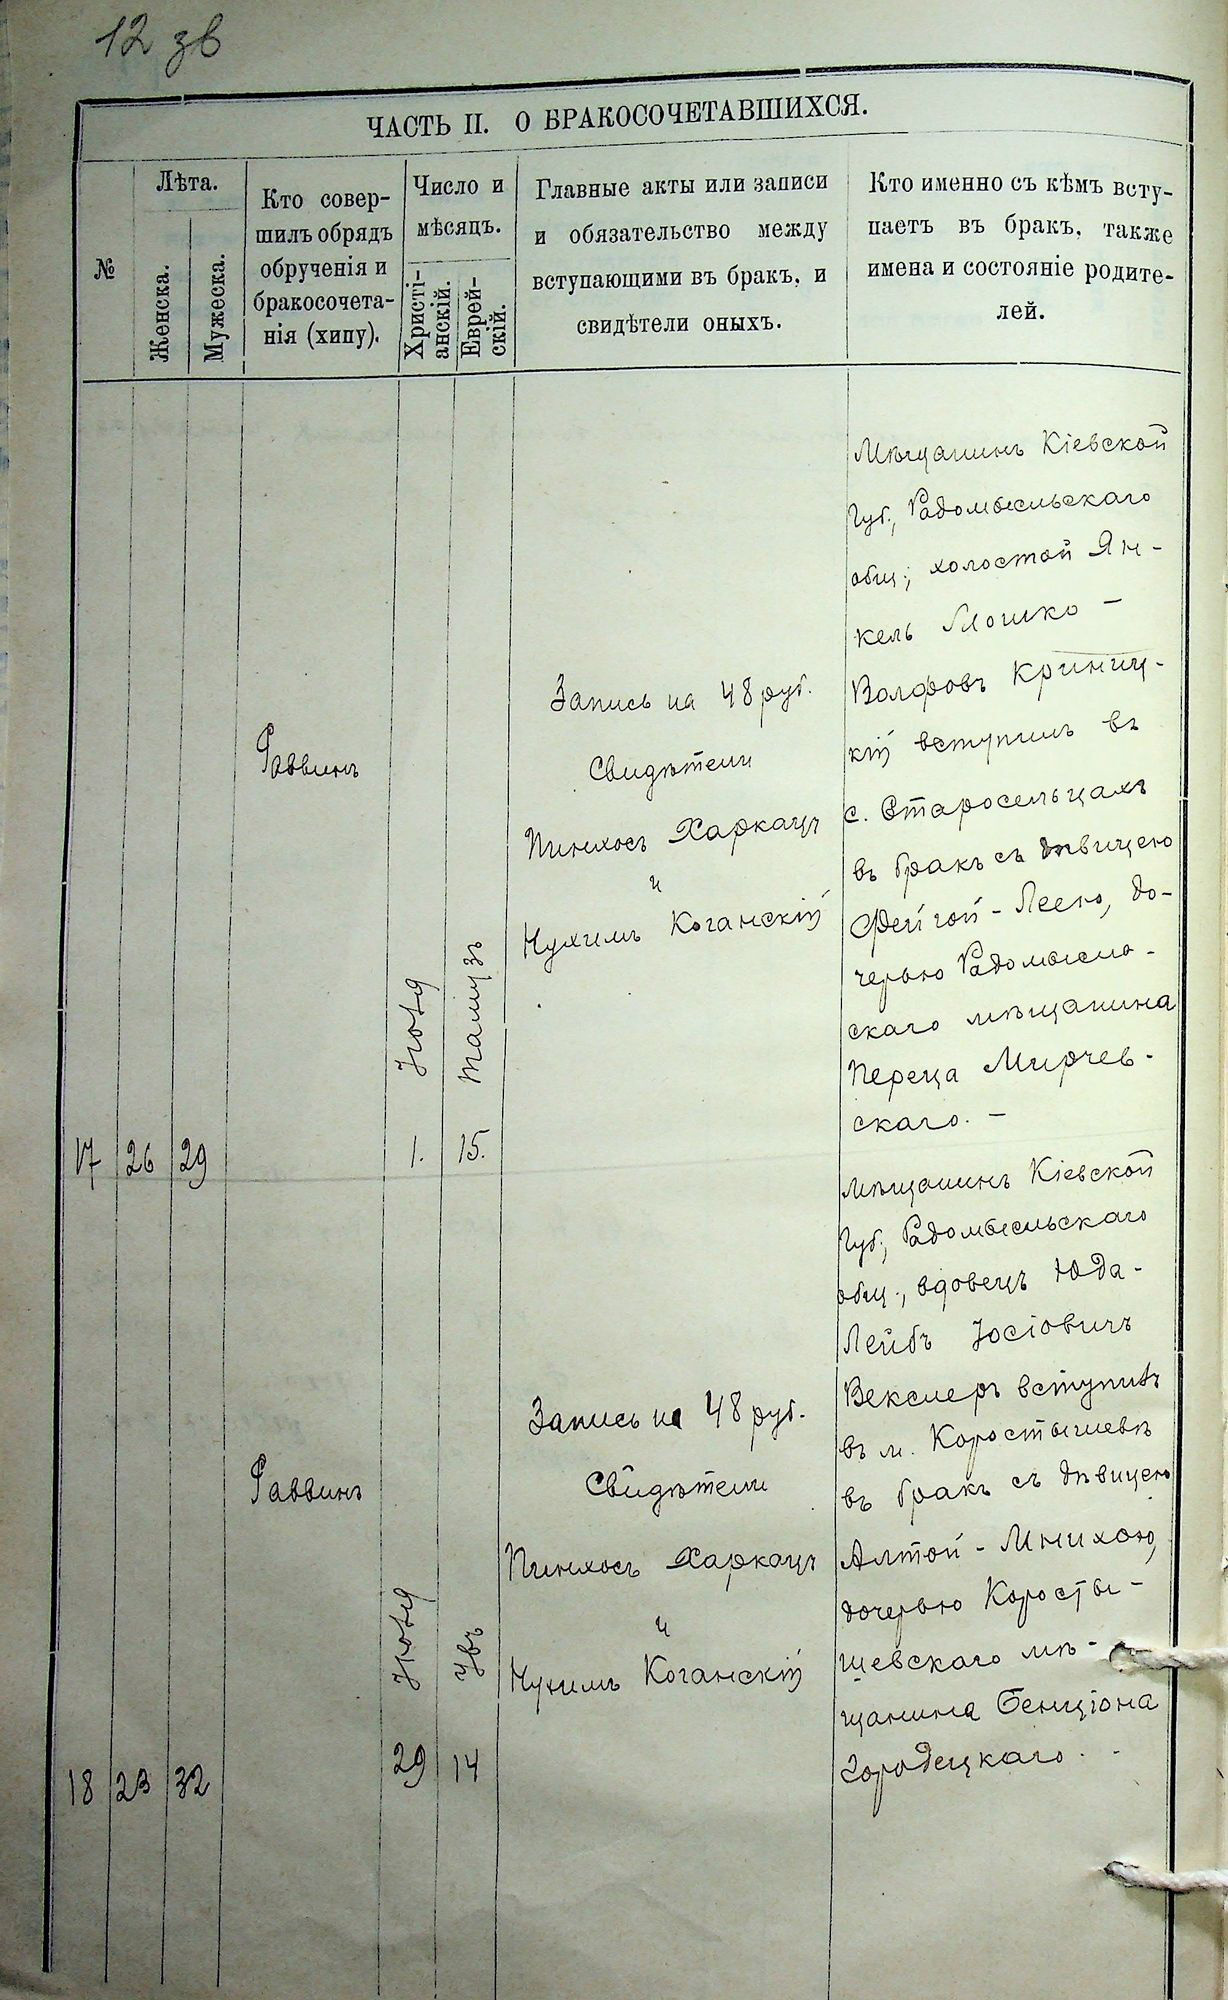 12 зв
ЧАСТЬ II. О БРАКОСОЧЕТАВШИХСЯ.
№
Лѣта.
Женска.
Мужеска.
Кто совер-
шилъ обрядъ
обрученія и
бракосочета-
нія (хипу).
Число и
мѣсяцъ.
Христі-
анскій.
Еврей-
скій.
Главные акты или записи
и обязательство между
вступающими въ бракъ, и
свидѣтели оныхъ.
Кто именно съ кѣмъ всту-
паетъ въ бракъ, также
имена и состояніе родите-
лей.
17
26
29
Раввинъ
Іюля
1.
Тамузъ
15.
Запись на 48 руб.
Свидѣтели
Пинхосъ Харкацъ
и
Нухимъ Коганскій
Мѣщанинъ Кіевской
губ., Радомысльскаго
общ., холостой Ян-
кель Мошко-
Волфовъ Криниц-
кій вступилъ въ
с. Старосельцахъ
въ бракъ съ дѣвицею
Фейгой-Леею, до-
черью Радомысль-
скаго мѣщанина
Переца Мирчев-
скаго. -
18
23
32
Раввинъ
Іюля
29
Увъ
14
Запись на 48 руб.
Свидѣтели
Пинхосъ Харкацъ
и
Нухимъ Коганскій
Мѣщанинъ Кіевской
губ., Радомысльскаго
общ., вдовецъ Юда-
Лейбъ Іосіовичъ
Векслеръ вступилъ
въ м. Коростышевѣ
въ бракъ съ дѣвицею
Алтой-Мнихою,
дочерью Коросты-
шевскаго мѣ-
щанина Бенціона
Городецкаго. -